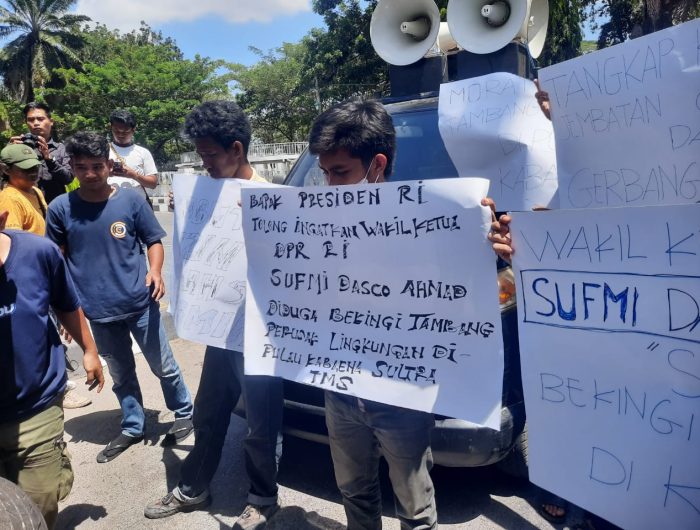 BAPAK PRESIDEN RI
TOLONG INGATKAN WAKIL KETUA
DPR RI
SUFMI DASCO AHMAD
DIDUGA BEKINGI TAMBANG
PERUSAK LINGKUNGAN DI-
PULAU KABAENA SULTRA
TMS
TAMBANG
KABA
TANGKAP
JEMBATAN
DA
GERBANG
WAKIL K
SUFMI D
"S
BEKINGI
DI K